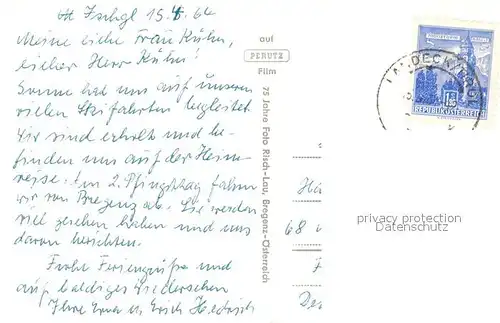 Ischgl 15.4.64
Meine liebe Frau Kühn,
lieber Herr Kühn!
Sonne hat uns auf unseren
vielen Skifahrten begleitet.
Wir sind erholt und be-
finden uns auf der Heim-
reise. Am 2. Pfingsttag fahren
wir von Bregenz ab. Sie werden
viel gesehen haben und uns
davon berichten.
Frohe Feriengrüße und
auf baldiges Wiedersehen
Ihre Erna u. Erich
auf
PERUTZ
Film
75 Jahre Foto Risch-Lau, Bregenz-Österreich
LANDECK, TIROL
REPUBLIK ÖSTERREICH
68
privacy protection
Datenschutz